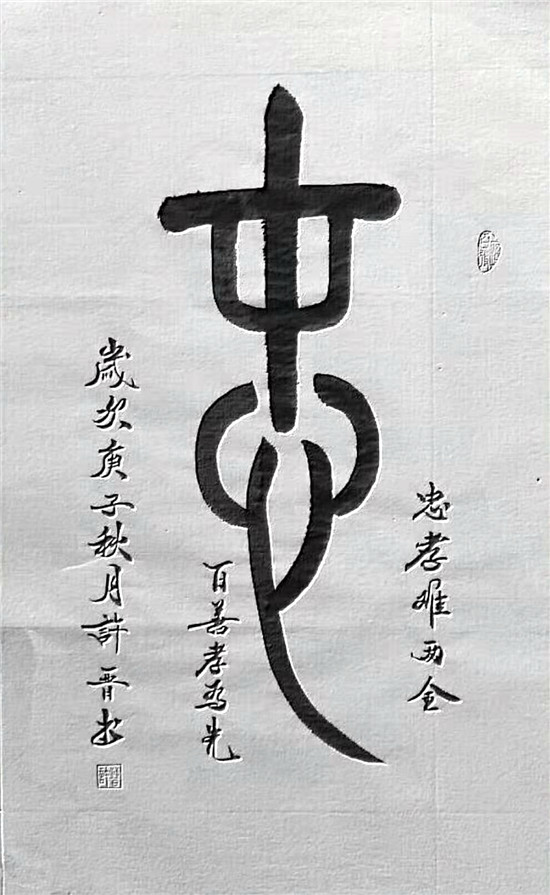 忠
忠孝难两全
百善孝为先
歲次庚子秋月許晋书